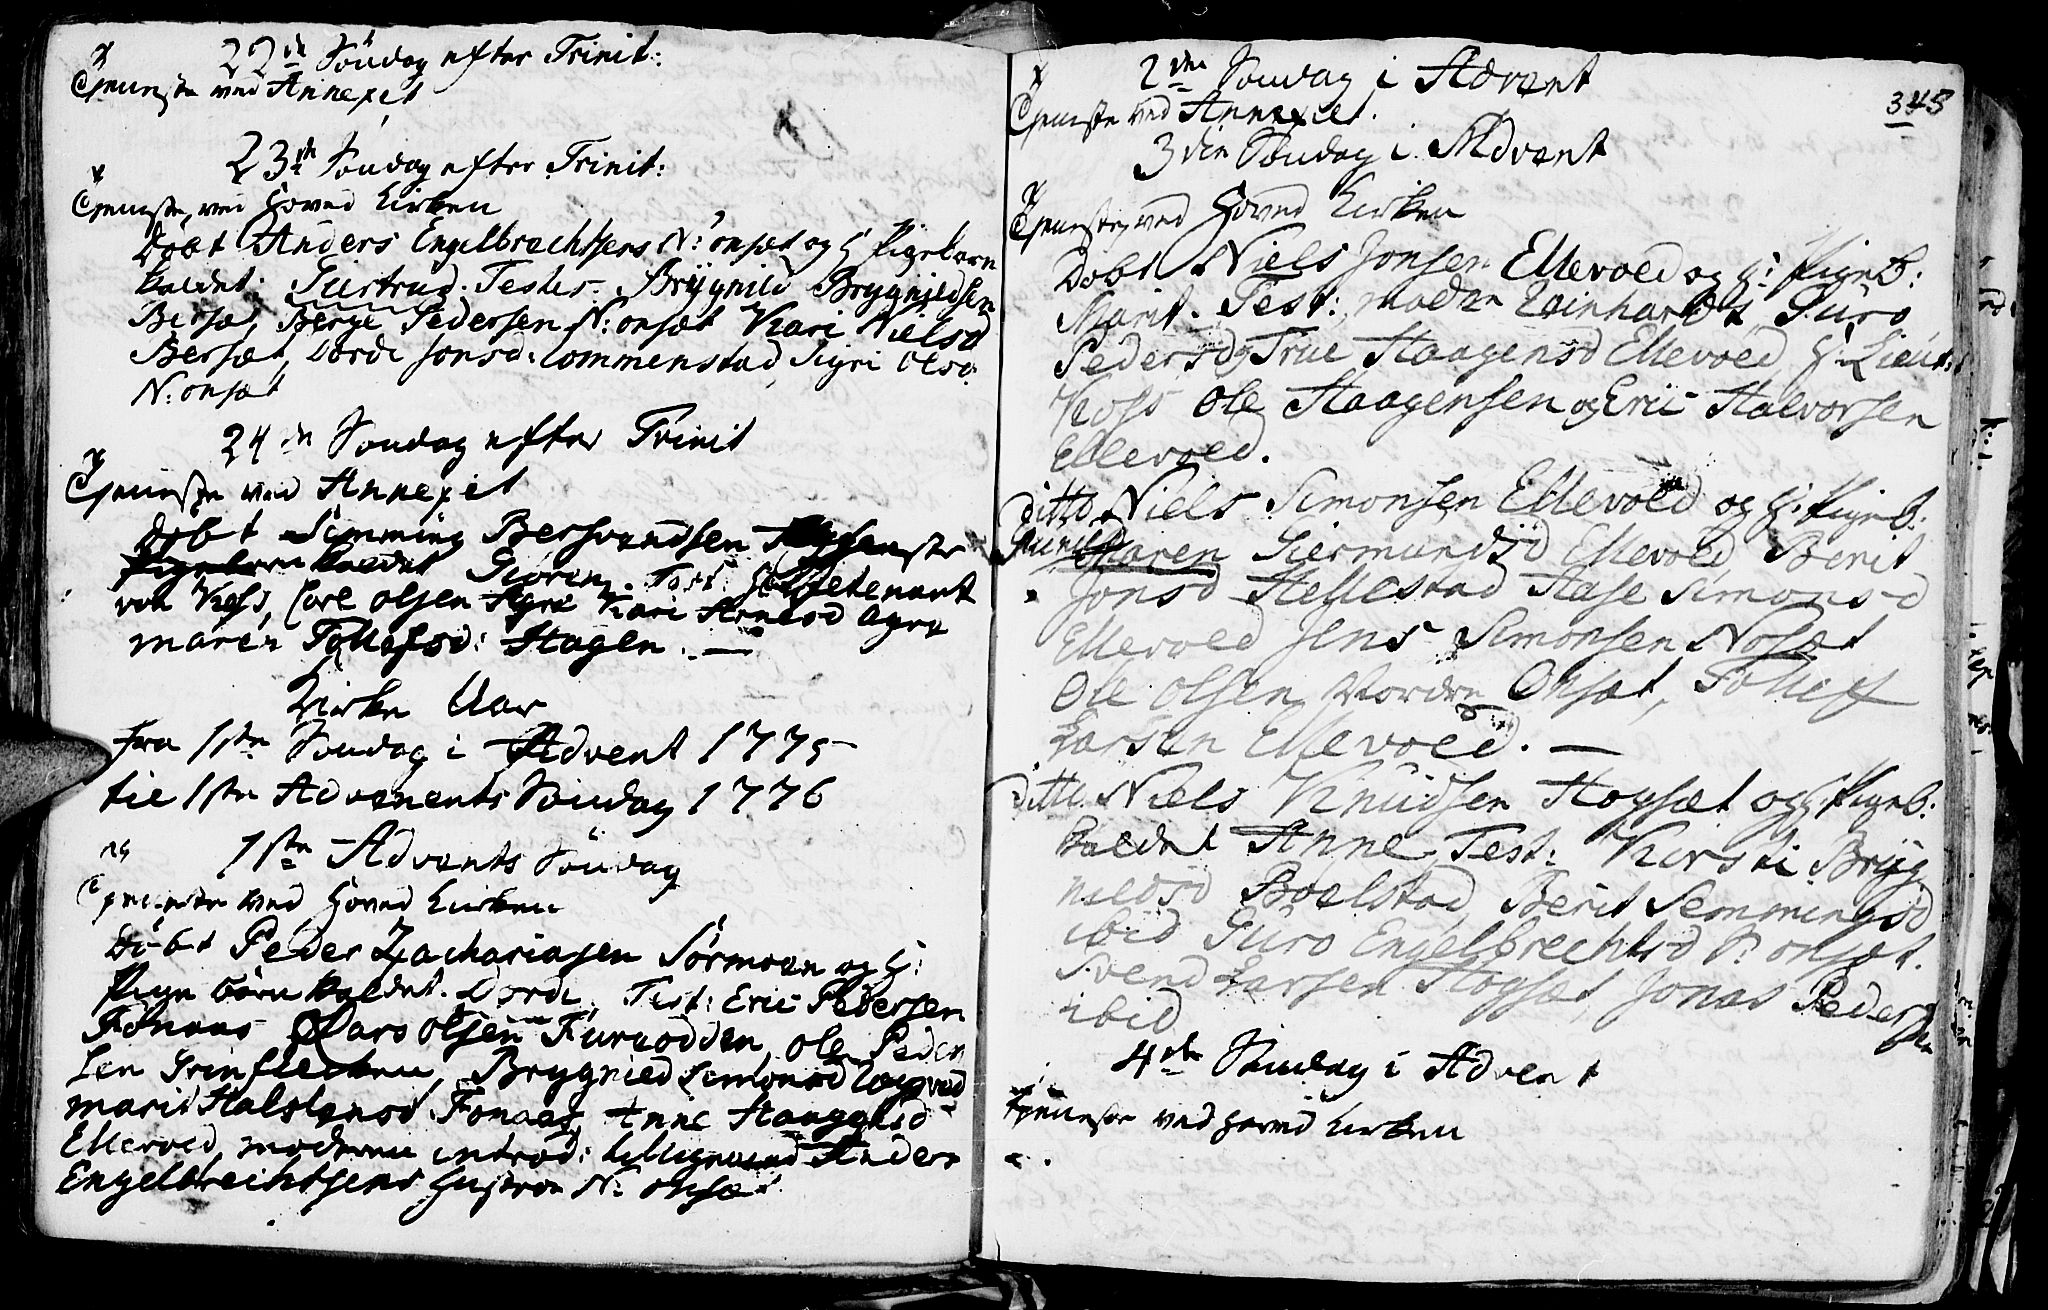 22de Søndag efter Trinit:
Tjeneste ved Annexet
23de Søndag efter Trinit:
Tjeneste ved Hoved Kirken
Døbt Anders Engelbrechtsens N: onsæt og H: Pigebarn
kaldet Giertrud. Testes. Brygnild Brygnildsen
Bersæt, Berge Pedersen N: onsæt Kari Nielsd
Bersæt, Dordi Jonsd: Commenstad Sigri Olsd:
N: onsæt
24de Søndag efter Trinit
Tjeneste ved Annexet
Døbt Semming Bersvendsen
kaldet Giøren. Test:
von Kofs, Carl Olsen Agre Kari Arnesd Agre
maren Tollefsd: Hagen. —
Kirke Aar
fra 1ste Søndag i Advent 1775
til 1ste Advenents Søndag 1776
1ste Advents Søndag
Tjeneste ved Hoved Kirken
Døbt Peder Zachariasen Sørmoen og H:
Pige børn kaldet. Dordi, Test: Eric Pedersen
Fonaas Lars Olsen Furuodden, Ole Peder
sen Brygnild Simonsd
marit Halstensd Fonaas, Anne Haagensd
Ellevold, moderen introd: Anders
Engelbreichtsens Hustroe N: onsæt
2den Søndag i Advent
345
Tjeneste ved Annexet.
3die Søndag i Advent
Tjeneste ved Hoved Kirken
Døbt Niels Jonsen Ellevold og H: Pigeb:
Marit. Test: madm Leinhardt, Guro
Pedersd, True Haagensd Ellevold, H: Lieut:
Kofs Ole Haagensen og Eric Halvorsen
Ellevold.
ditto Niels Simonsen Ellevold og H: Pigeb:
Gunild
Maren Giermundsd Ellevold, Berit
Jonsd Hellestad Aase Simonsd
Ellevold Jens Simonsen Nosæt
Ole Olsen Nordre Onsæt, Tollef
Larsen Ellevold. —
ditto. Niels Knudsen Hogsæt og H: Pigeb:
kaldet Anne, Test: Kirsti Bryg
nildsd Boelstad, Berit Semmingsd
ibid Guro Engelbrechtsd N: onsæt.
Svend Larsen Hogsæt, Jonas Pedersen
ibid
4de Søndag i Advent
Tjeneste ved Hoved Kirken